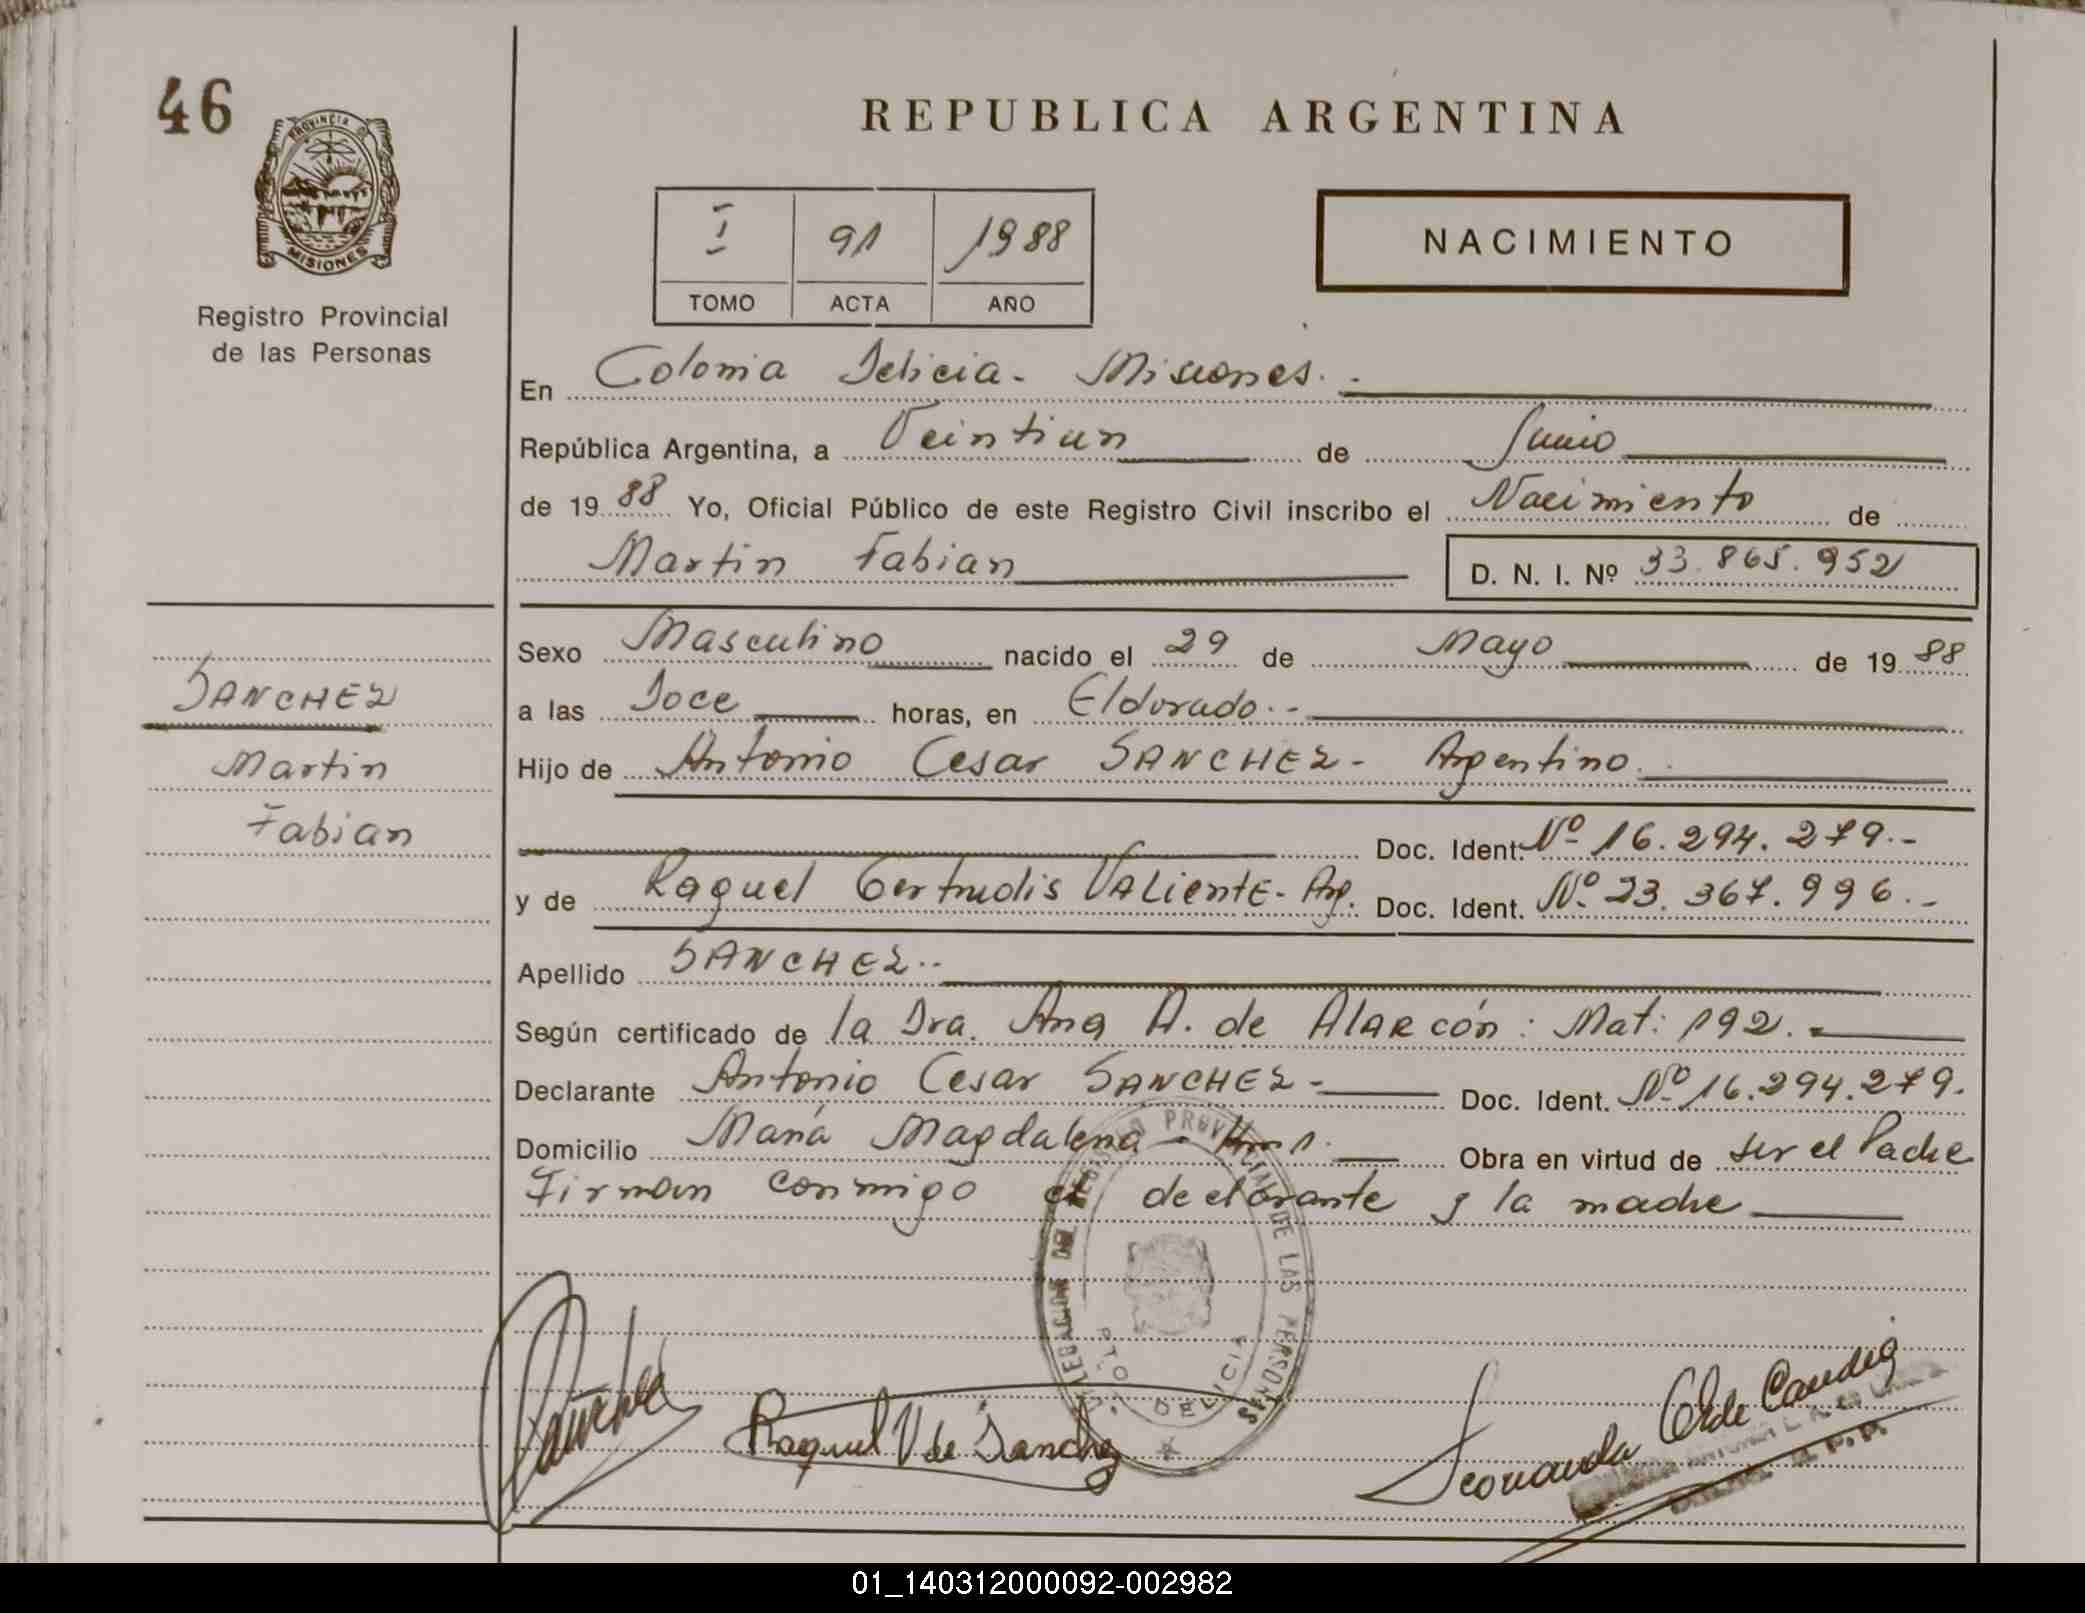 46
PROVINCIA DE
MISIONES
Registro Provincial
de las Personas
REPUBLICA ARGENTINA
I 91 1988
TOMO ACTA AÑO
NACIMIENTO
En Colonia Delicia - Misiones. -
República Argentina, a Veintiun de Junio
de 19 88 Yo, Oficial Público de este Registro Civil inscribo el Nacimiento de
Martin Fabian D. N. I. Nº 33.865.952
Sexo Masculino nacido el 29 de Mayo de 19 88
a las Doce horas, en Eldorado. -
Hijo de Antonio Cesar SANCHEZ - Argentino.
Doc. Ident. Nº 16.294.279. -
y de Raquel Gertrudis VALIENTE - Arg. Doc. Ident. Nº 23.367.996. -
Apellido SANCHEZ. -
Según certificado de la Dra. Ana A. de Alarcón: Mat: 192. -
Declarante Antonio Cesar SANCHEZ - Doc. Ident. Nº 16.294.279.
Domicilio María Magdalena - Km 1. Obra en virtud de ser el Padre
Firman conmigo el declarante y la madre
SANCHEZ
Martin
Fabian
DELEGACION DEL REGISTRO PROVINCIAL DE LAS PERSONAS
PTO. DELICIA
Raquel V de Sanchez
01_140312000092-002982